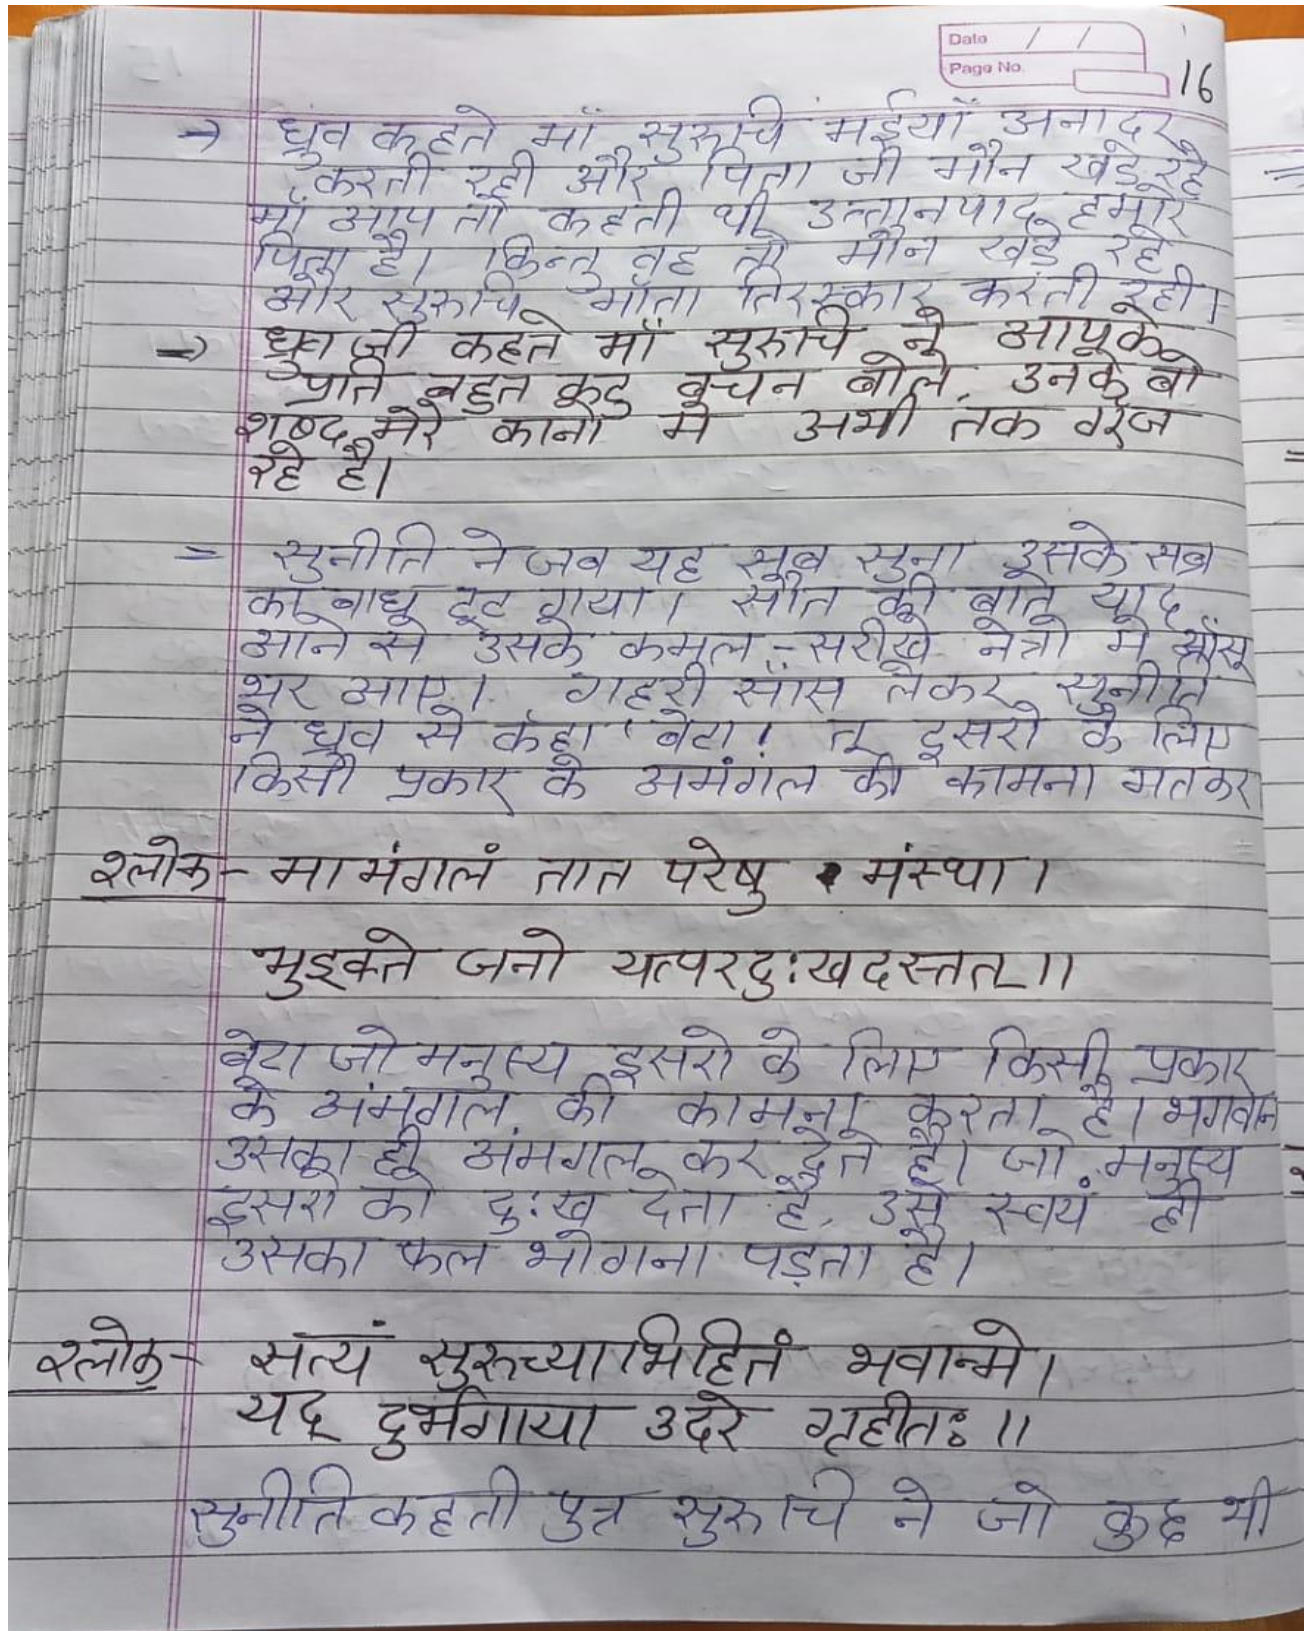 Date / /
Page No.
16
→ ध्रुव कहते माँ सुरुचि मईयाँ अनादर
करती रही और पिता जी मौन खड़े रहे
माँ आप तो कहती थी उत्तानपाद हमारे
पिता है। किन्तु वह तो मौन खडे रहे
और सुरुचि माँता तिरस्कार करती रही।
→ ध्रुव जी कहते माँ सुरुचि ने आपके
प्रति बहुत कटु वचन बोले, उनके वो
शब्द मेरे कानो मे अभी तक गूंज
रहे है।
= सुनीति ने जब यह सब सुना उसके सब्र
का बाध टूट गया। सौत की बाते याद
आने से उसके कमल-सरीखे नेत्रो मे आँसू
भर आए। गहरी साँस लेकर सुनीति
ने ध्रुव से कहा 'बेटा! तू दुसरो के लिए
किसी प्रकार के अमंगल की कामना मतकर
श्लोक- मामंगलं तात परेषु मंस्था।
भुङक्ते जनो यत्परदुःखदस्तत्॥
बेटा जो मनुष्य दुसरो के लिए किसी प्रकार
के अंमगल की कामना करता है। भगवान
उसका ही अंमगल कर देते है। जो मनुष्य
दुसरो को दुःख देता है, उसे स्वयं ही
उसका फल भोगना पड़ता है।
श्लोक- सत्यं सुरुच्याभिहितं भवान्मे।
यद् दुर्भगाया उदरे गृहीतः॥
सुनीति कहती पुत्र सुरुचि ने जो कुछ भी